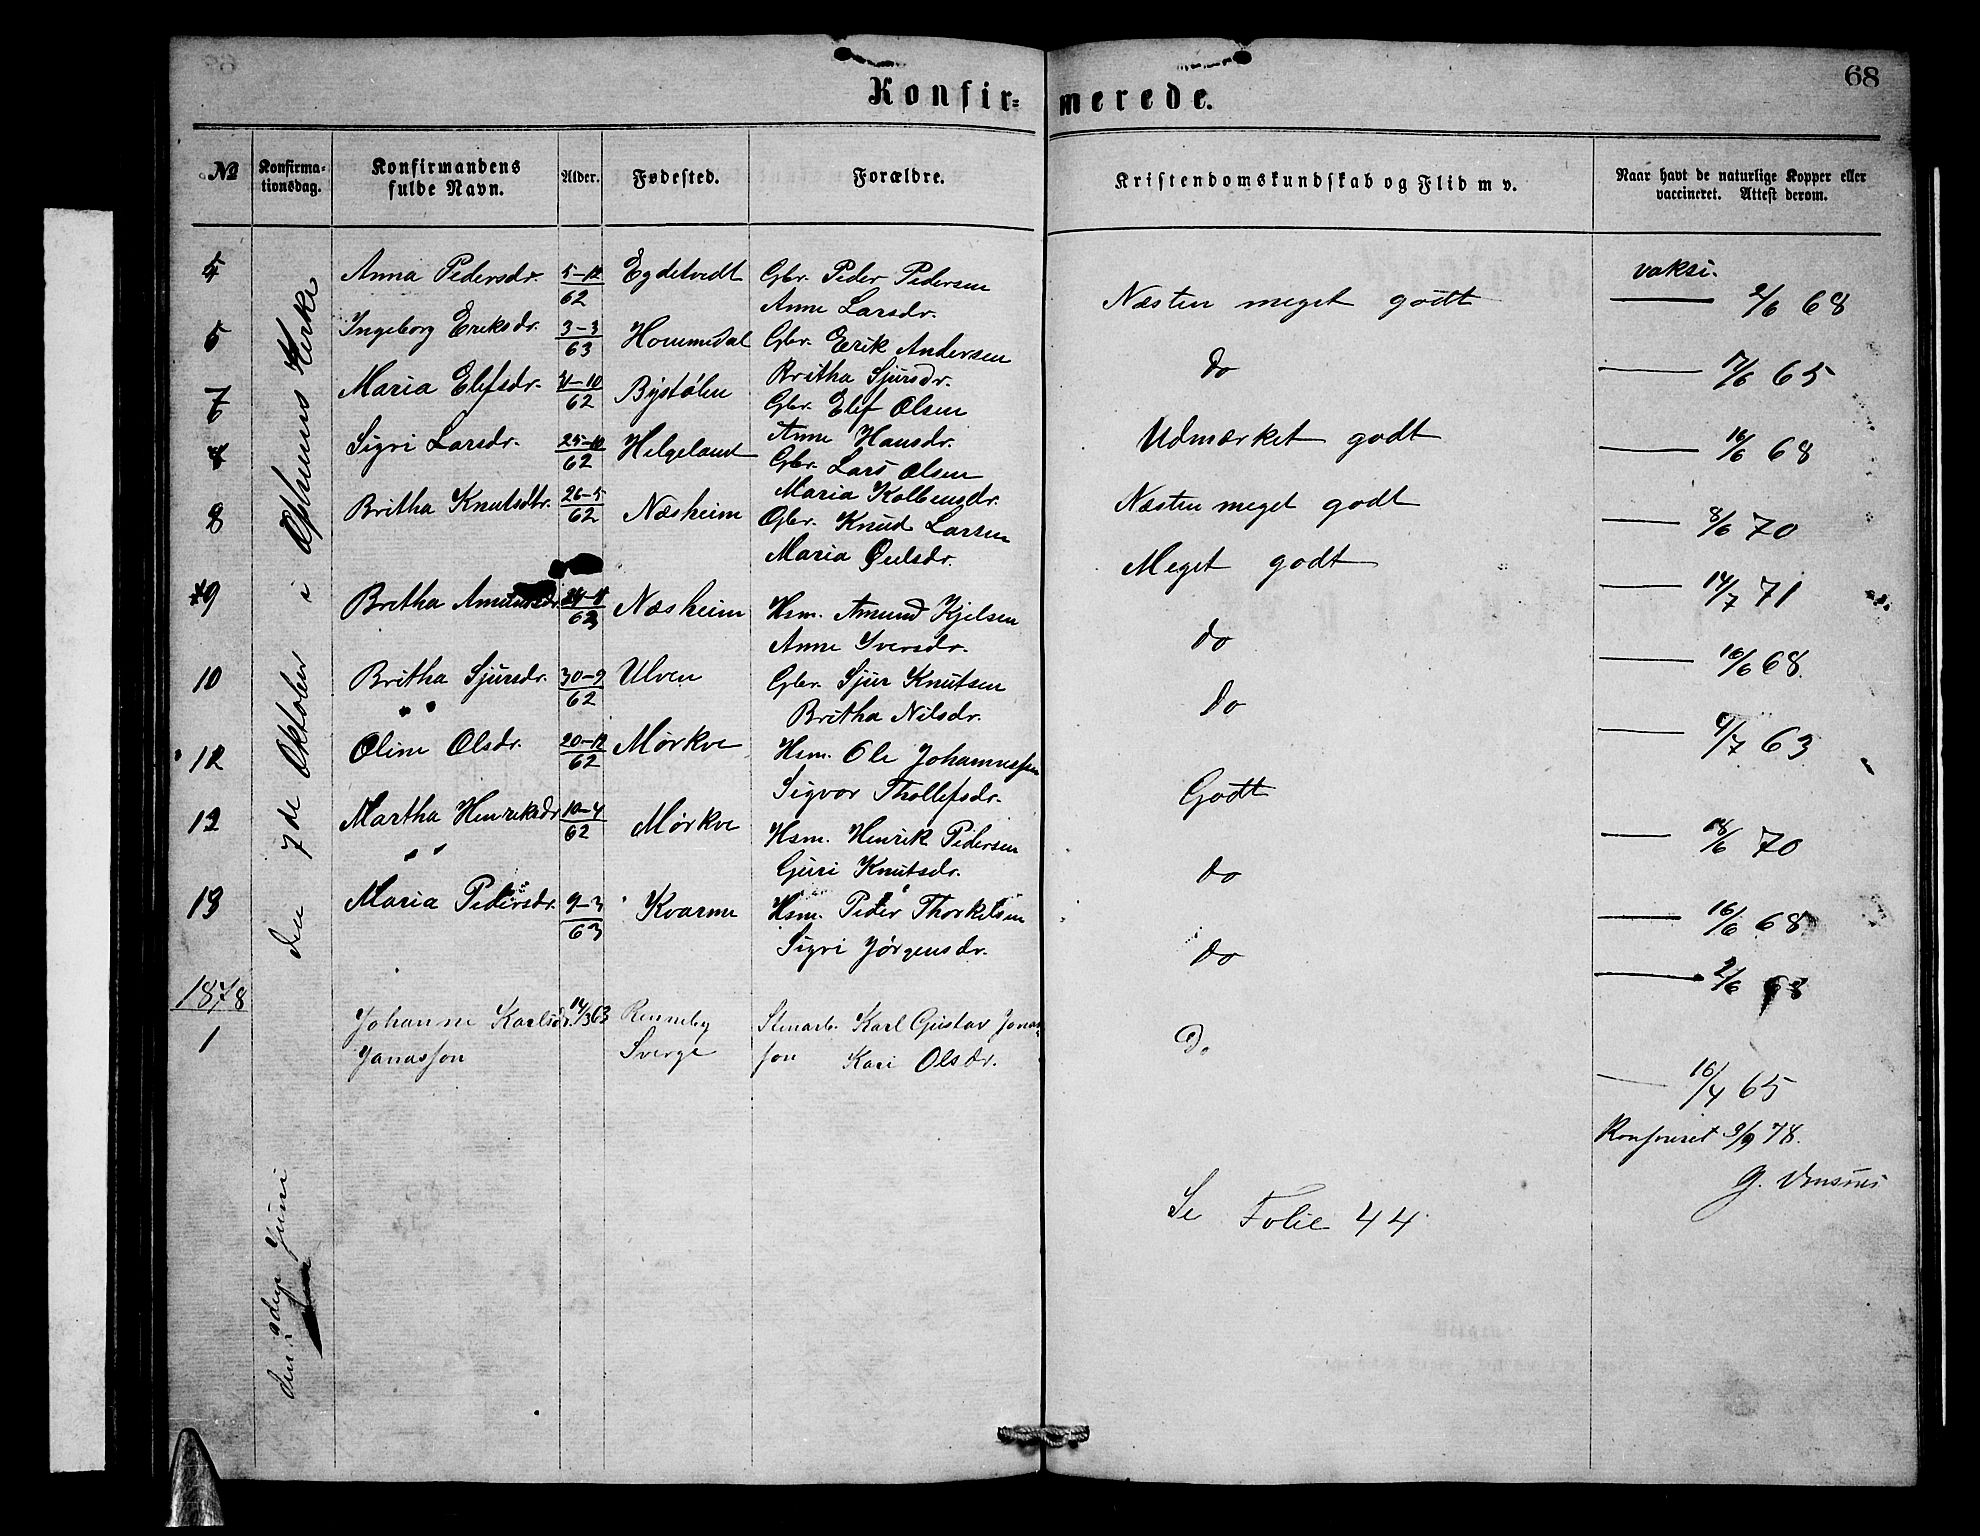 68
Konfir=merede.
№ Konfirma=tionsdag. Konfirmandens fulde Navn. Alder. Fødested. Forældre. Kristendomskundskab og Flid m v. Naar havt de naturlige Kopper eller vaccineret. Attest derom.
den 7de Oktober i Opheims Kirke
vaksi.
5 Anna Pedersdr. 5-12 62 Egdetvedt Gbr. Peder Pedersen
Anne Larsdr. Næsten meget godt — 2/6 68
Ingeborg Eriksdr. 3-3 63 Hommedal Gbr. Erik Andersen
Britha Sjursdr. do — 7/6 65
7 Maria Elefsdr. 62 Bystølen Gbr. Elef Olsen
Anne Hansdr. Udmærket godt — 16/6 68
8 Sigri Larsdr. 25-10 62 Helgeland Gbr. Lars Olsen
Maria Kolbensdr. Næsten meget godt — 8/6 70
Britha Knutsdtr. 26-5 62 Næsheim Gbr. Knud Larsen
Maria Meget godt — 14/7 71
9 Britha Amundsdr. Næsheim Hsm. Amund Kjelsen
Anne Iversdr. do — 16/6 68.
10 Britha Sjursdr. 30-9 62 Ulven Gbr. Sjur Knutsen
Britha Nilsdr. do — 63
Oline Olsdr. 20-12 62 Mørkve Hsm. Ole Johannessen
Sigvor Thollefsdr. Godt — 18/6 70
12 Martha Henriksdr 10-4 62 Mørkve Hsm. Henrik Pedersen
Guri Knutsdr. do — 16/6 68
13 Maria Pedersdr. 9-3 63 Kvarme Hsm. Peder Thorkelsen
Sigri Jørgensdr. do — 2/6 68
1878
1 Johanne Karlsdr. 14/3 63 Renneby Stenarb. Karl Gustav Jonas-
Janasson Sverge son Kari Olsdr. Do — 16/4 65
Konfereret 3/9 78.
Se Folie 44
Juni